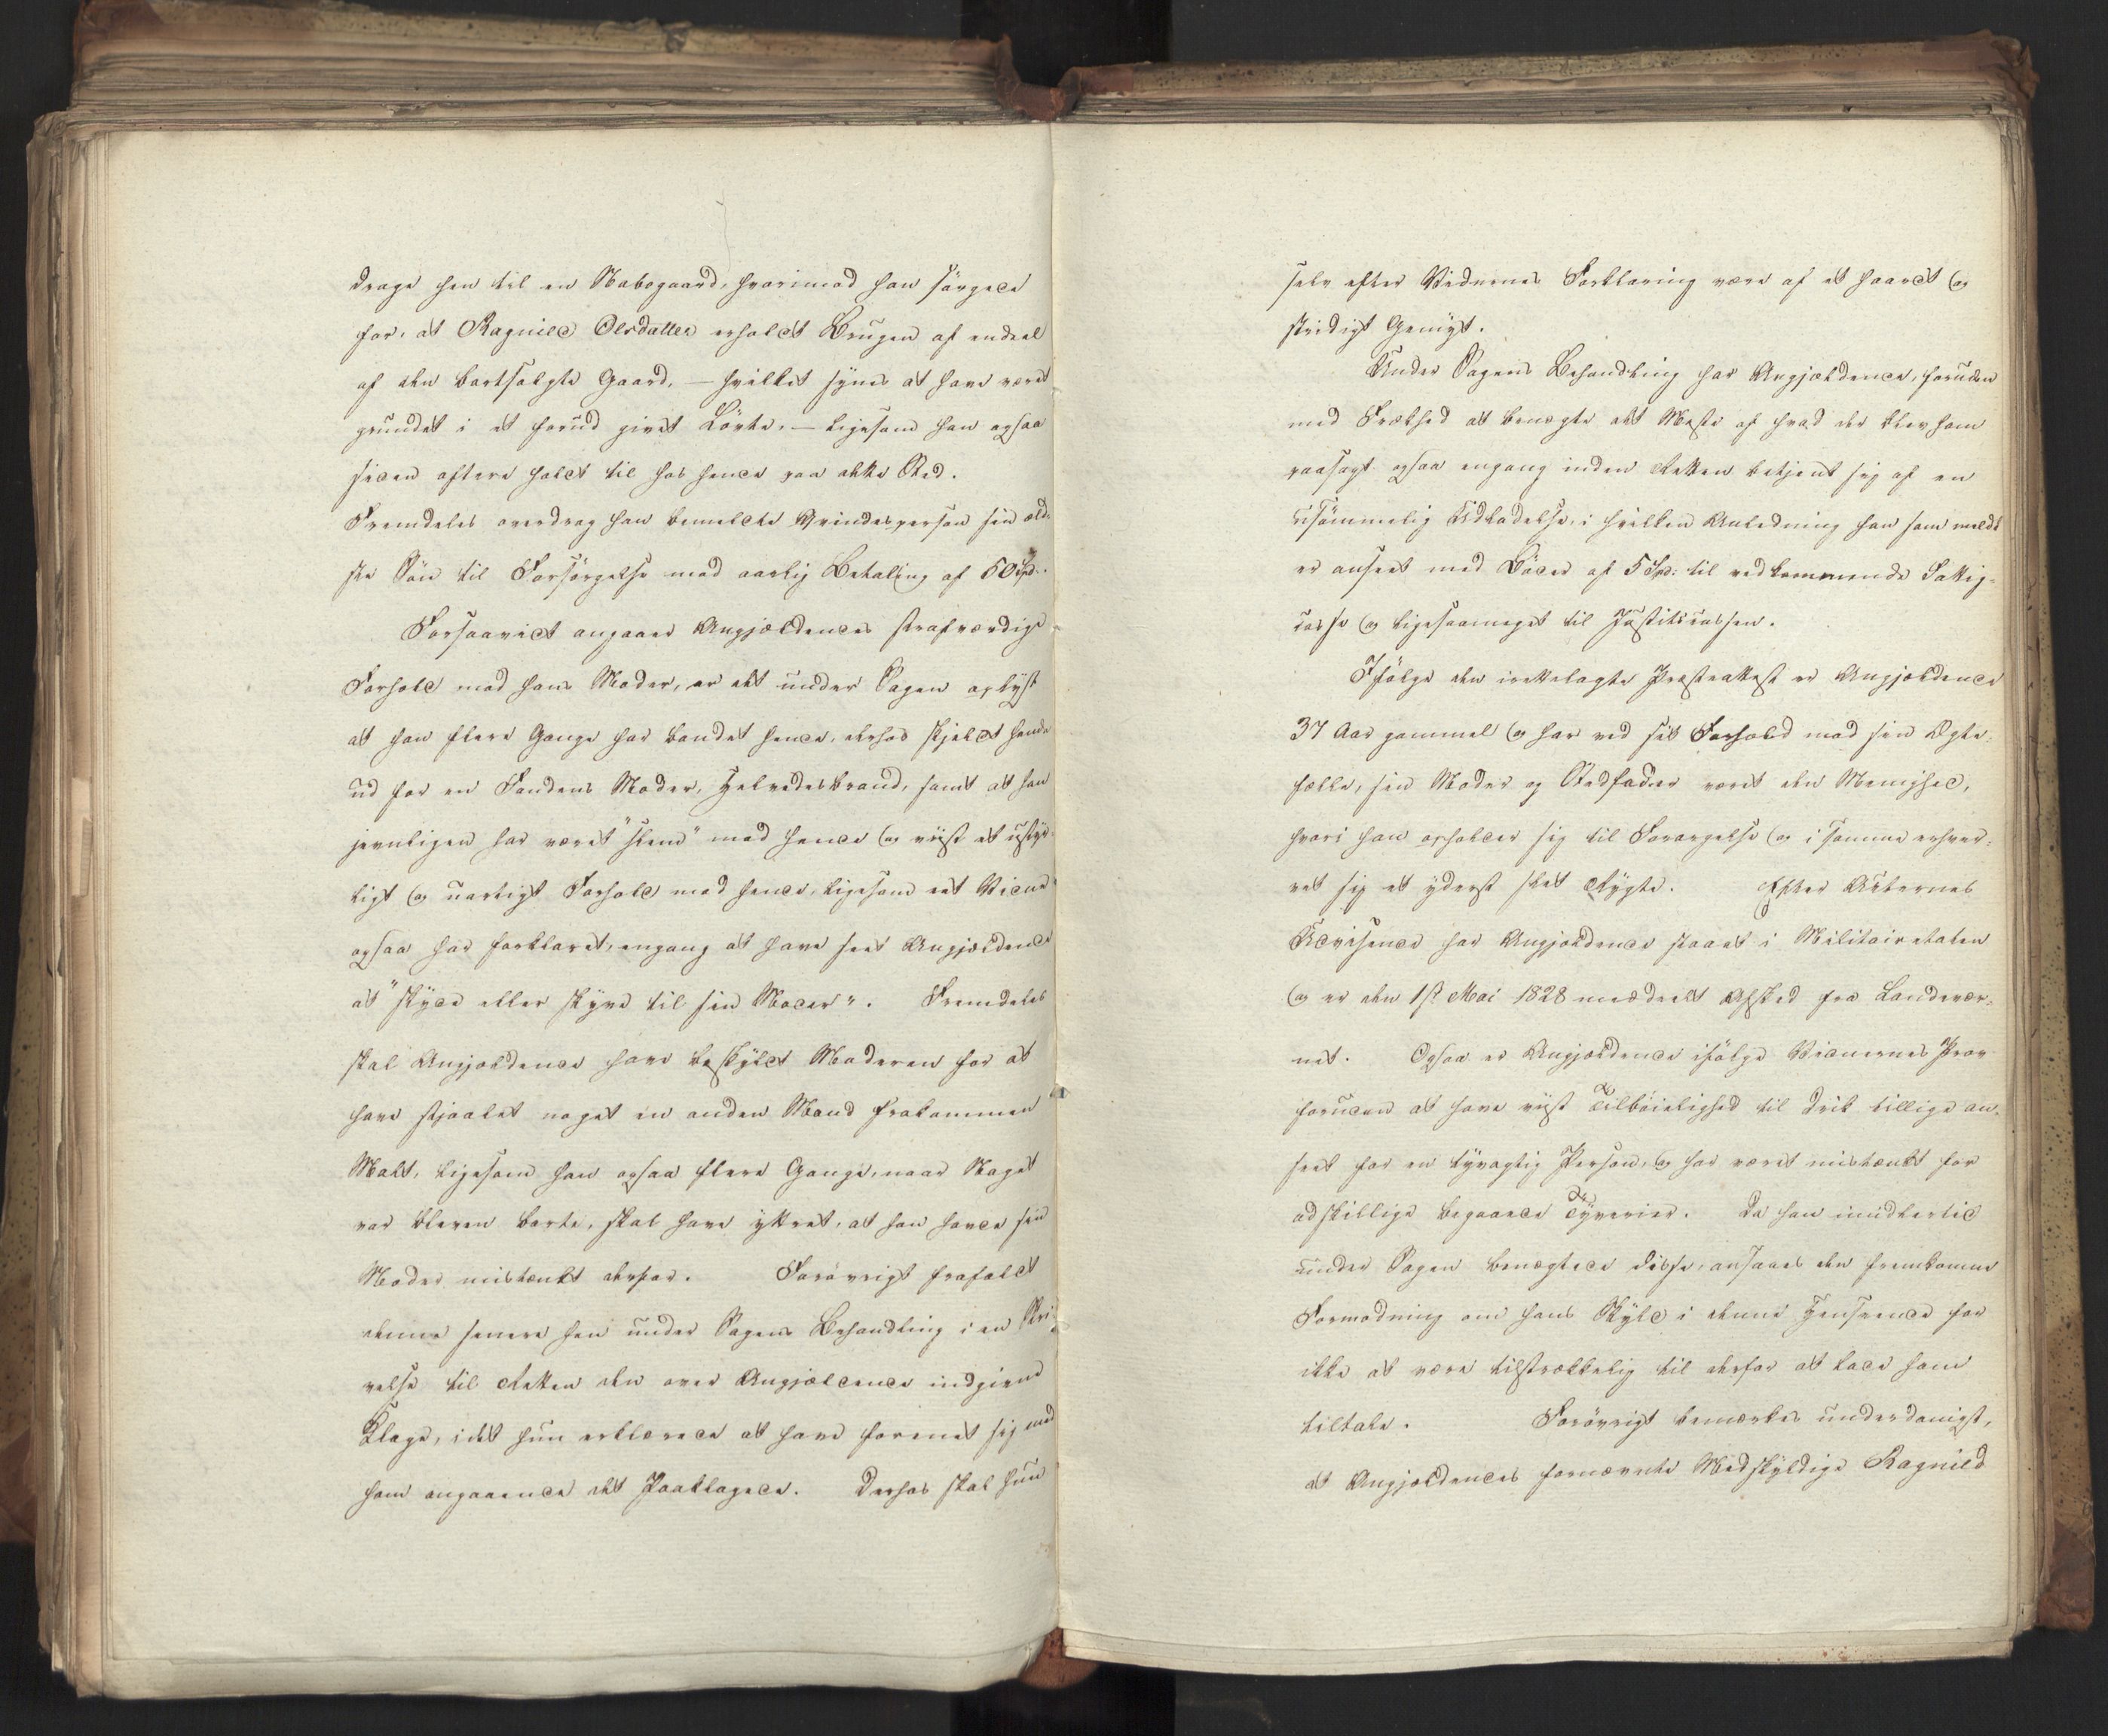 drage hen til en Nabogaard, hvorimod han sørgede
for, at Ragnild Olsdatter erholdt Brugen af endeel
af den bortsolgte Gaard, — hvilket synes at have været
grundet i et forud givet Löfte, — ligesom han ogsaa
siden oftere holdt til hos hende paa dette Sted.
Fremdeles overdrog han bemeldte Qvindesperson sin æld-
ste Søn til Forsørgelse mod aarlig Betaling af 50 Spd:.
Forsaavidt angaaer Angjældendes strafværdige
Forhold mod hans Moder, er det under Sagen oplyst
at han flere Gange har bandet hende, derhos skjeldt hende
ud for en Fandens Moder, Helvedesbrand, samt at han
jevnligen har været "slem" mod hende og viist et ustyr-
ligt og uartigt Forhold mod hende, ligesom eet Vidne
ogsaa har forklaret, engang at have seet Angjældende
at "skyde eller skyve til sin Moder". Fremdeles
skal Angjældende have beskyldt Moderen for at
have stjaalet noget en anden Mand frakommen
Malt, ligesom han ogsaa flere Gange, naar Noget
var bleven borte, skal have yttret, at han havde sin
Moder mistænkt derfor. Forøvrigt frafaldt
denne senere hen under Sagens Behandling i en Skri-
velse til Retten den over Angjældende indgivne
Klage, idet hun erklærede at have forenet sig med
ham angaaende det Paaklagede. Derhos skal hun
selv efter Vidnernes Forklaring være af et haardt og
stridigt Gemyt.
Under Sagens Behandling har Angjældende, foruden
med Frækhed at benægte det Meste af hvad der blev ham
paasagt ogsaa engang inden Retten betjent sig af en
usømmelig Udladelse, i hvilken Anledning han som meldt
er anseet med Bøder af 5 Spd: til vedkommende Fattig-
casse og ligesaameget til Justitscassen.
Ifølge den irettelagte Præsteattest er Angjældende
37 Aar gammel og har ved sit Forhold mod sin Ægte-
fælle, sin Moder og Stedfader været den Menighed,
hvori han opholder sig til Forargelse og i samme erhver-
vet sig et yderst slet Rygte. Efter Acternes
Udvisende har Angjældende staaet i Militairetaten
og er den 1ste Mai 1828 meddeelt Afsked fra Landevær-
net. Ogsaa er Angjældende ifølge Vidnernes Prov
foruden at have viist Tilbøielighed til Drik tillige an-
seet for en tyvagtig Person, og har været mistænkt for
adskillige begaaede Tyverier. Da han imidlertid
under Sagen benægtede disse, ansaaes den fremkomne
Formodning om hans Skyld i denne Henseende for
ikke at være tilstrækkelig til derfor at lade ham
tiltale. Forøvrigt bemærkes underdanigst,
at Angjældendes fornævnte Medskyldige Ragnild